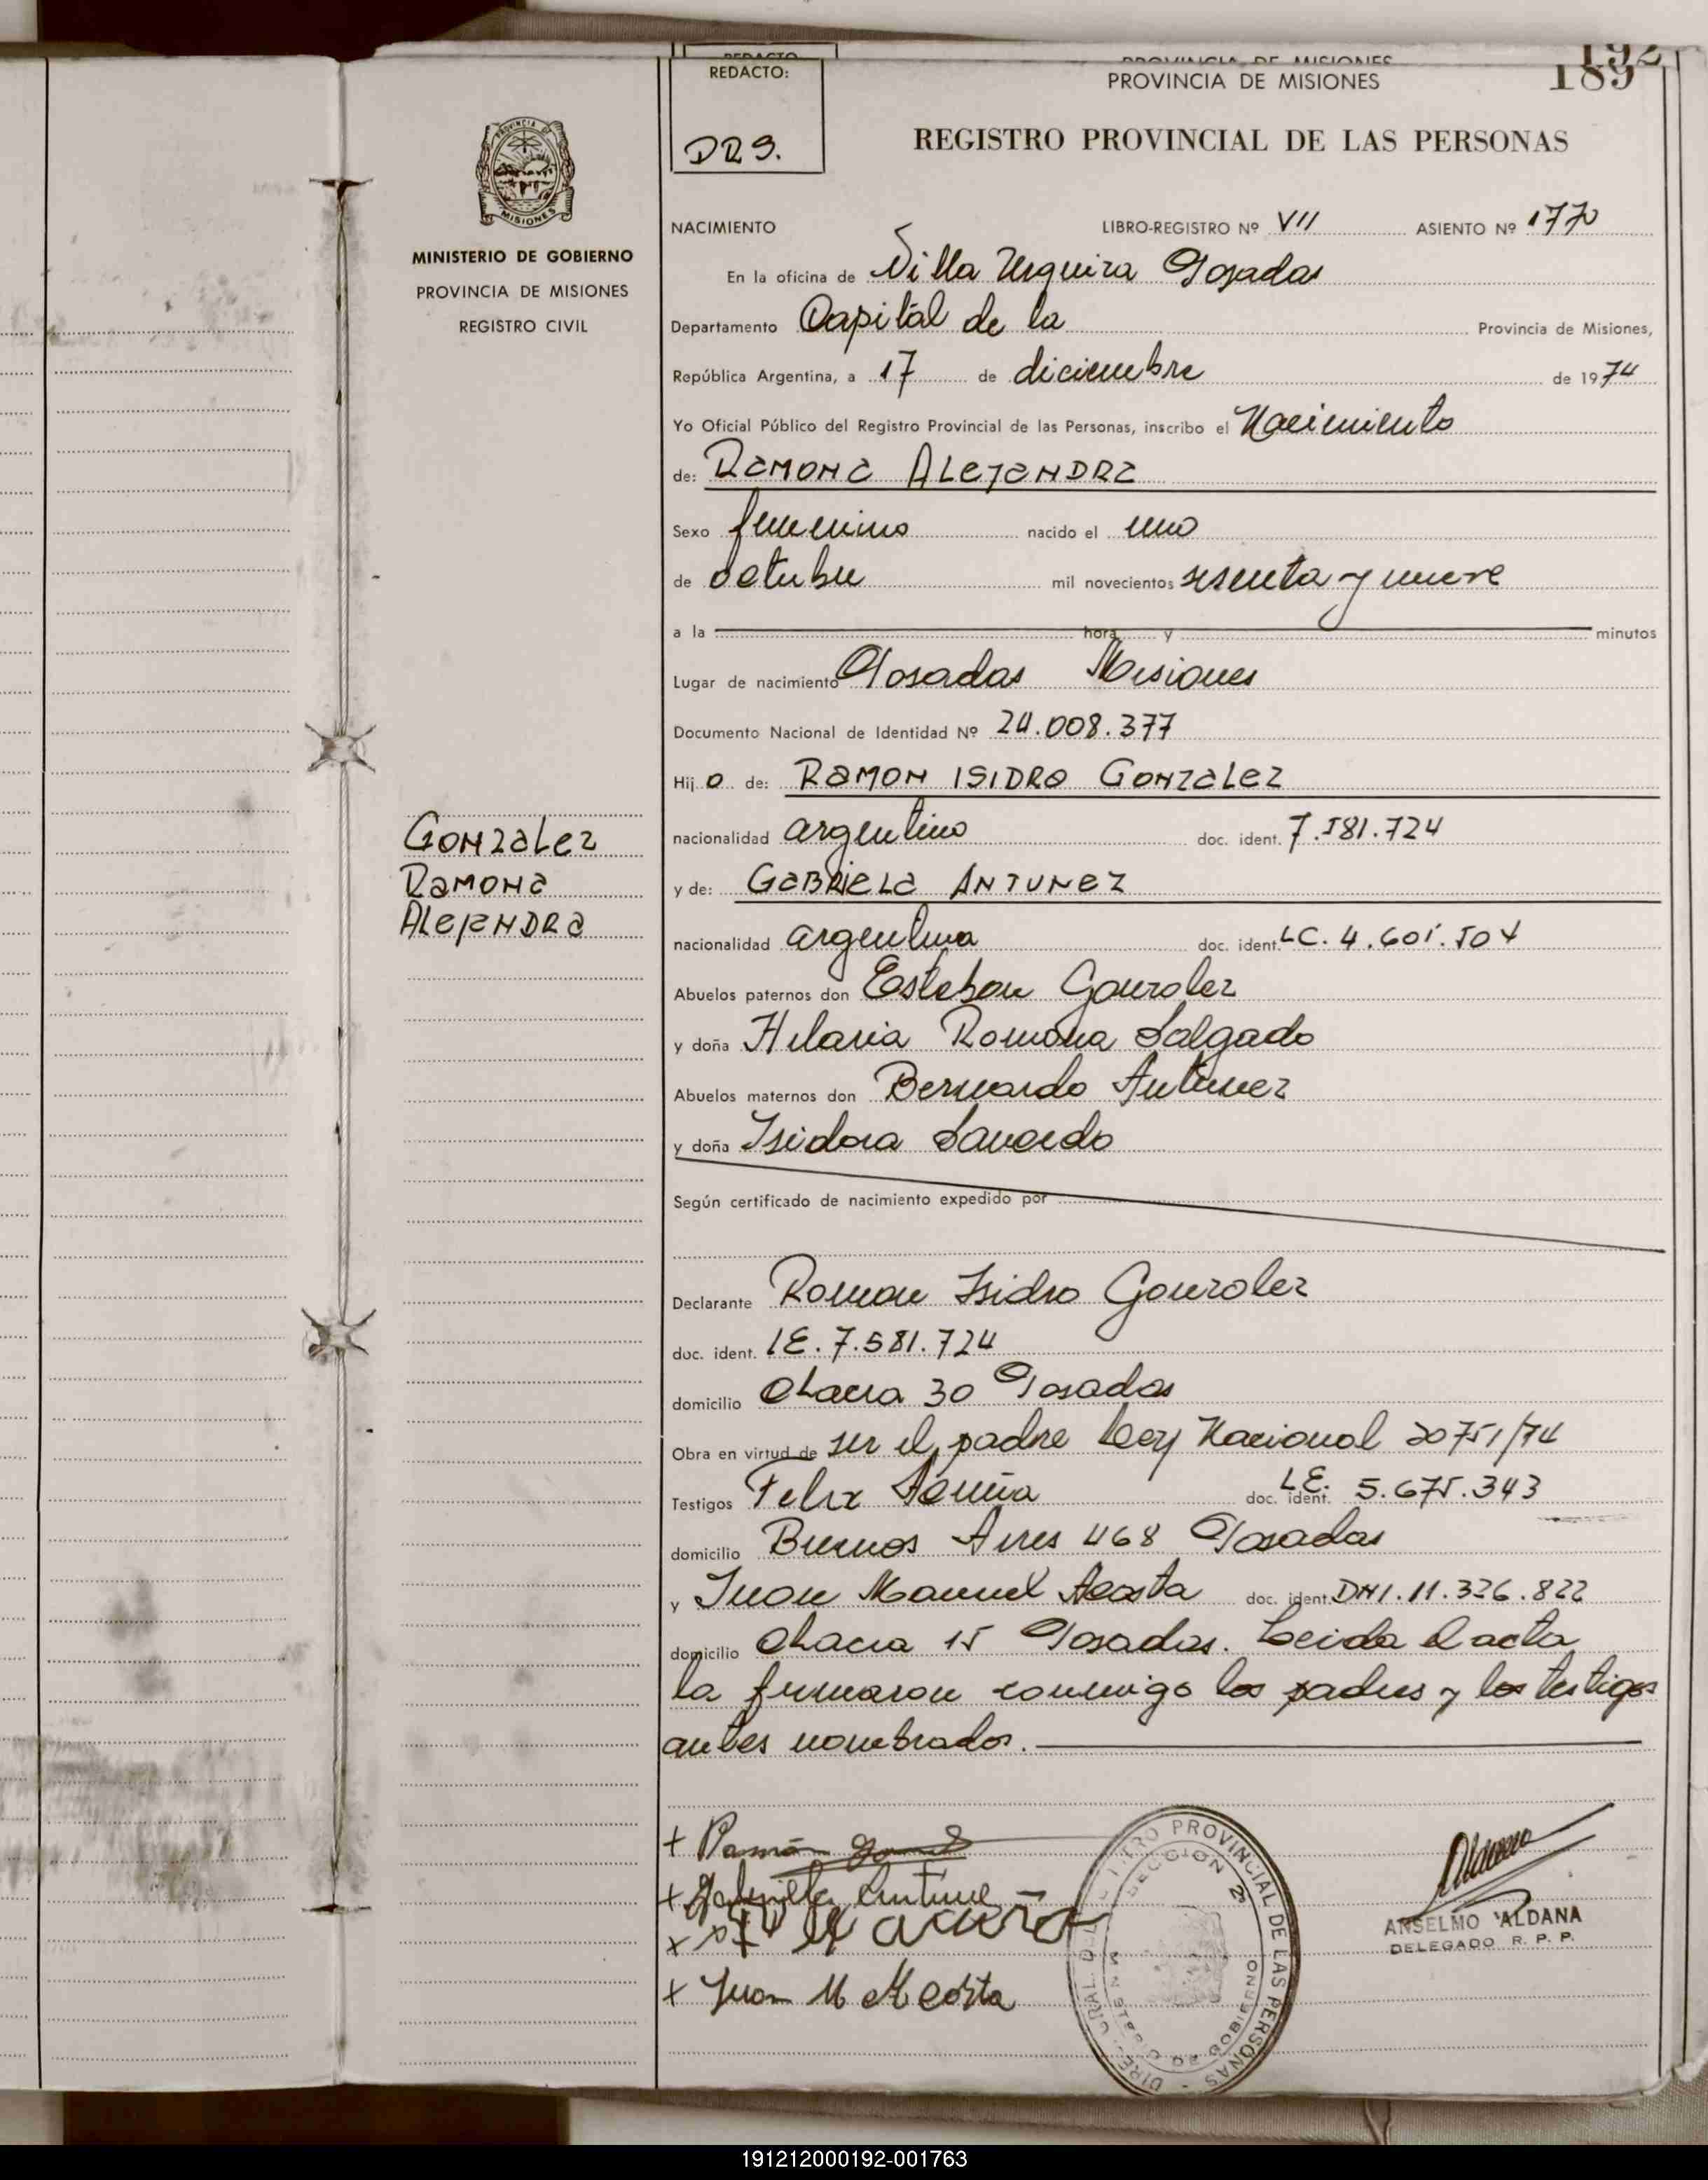 REDACTO:
PROVINCIA DE MISIONES
192
REDACTO:
PROVINCIA DE MISIONES
189
DRS.
REGISTRO PROVINCIAL DE LAS PERSONAS
PROVINCIA DE
MISIONES
MINISTERIO DE GOBIERNO
PROVINCIA DE MISIONES
REGISTRO CIVIL
NACIMIENTO LIBRO-REGISTRO Nº VII ASIENTO Nº 1770
En la oficina de Villa Urquiza Posadas
Departamento Capital de la Provincia de Misiones,
República Argentina, a 17 de diciembre de 1974
Yo Oficial Público del Registro Provincial de las Personas, inscribo el Nacimiento
de: RAMONA ALEJANDRA
Sexo femenino nacido el uno
de octubre mil novecientos sesenta y nueve
a la hora y minutos
Lugar de nacimiento Posadas Misiones
Documento Nacional de Identidad Nº 24.008.377
Hij o de: RAMON ISIDRO GONZALEZ
nacionalidad argentino doc. ident. 7.581.724
y de: GABRIELA ANTUNEZ
nacionalidad argentina doc. ident. LC. 4.601.504
Abuelos paternos don Esteban Gonzalez
y doña Hilaria Romona Salgado
Abuelos maternos don Bernardo Antunez
y doña Isidora
Según certificado de nacimiento expedido por
GONZALEZ
RAMONA
ALEJANDRA
Declarante Ramon Isidro Gonzalez
doc. ident. LE. 7.581.724
domicilio Chacra 30 Posadas
Obra en virtud de ser el padre Ley Nacional 20751/74
Testigos Felix doc. ident. LE. 5.675.343
domicilio Buenos Aires 468 Posadas
y Juan Manuel Acosta doc. ident. DNI. 11.326.822
domicilio Chacra 15 Posadas. Leida el acta
la firmaron conmigo los padres y los testigos
antes nombrados.
+ Ramón
+ Gabriela Antune
x
+ Juan M Acosta
PROVINCIAL DE LAS PERSONAS
SECCION 2ª
GOBIERNO
ANSELMO ALDANA
DELEGADO R. P. P.
191212000192-001763